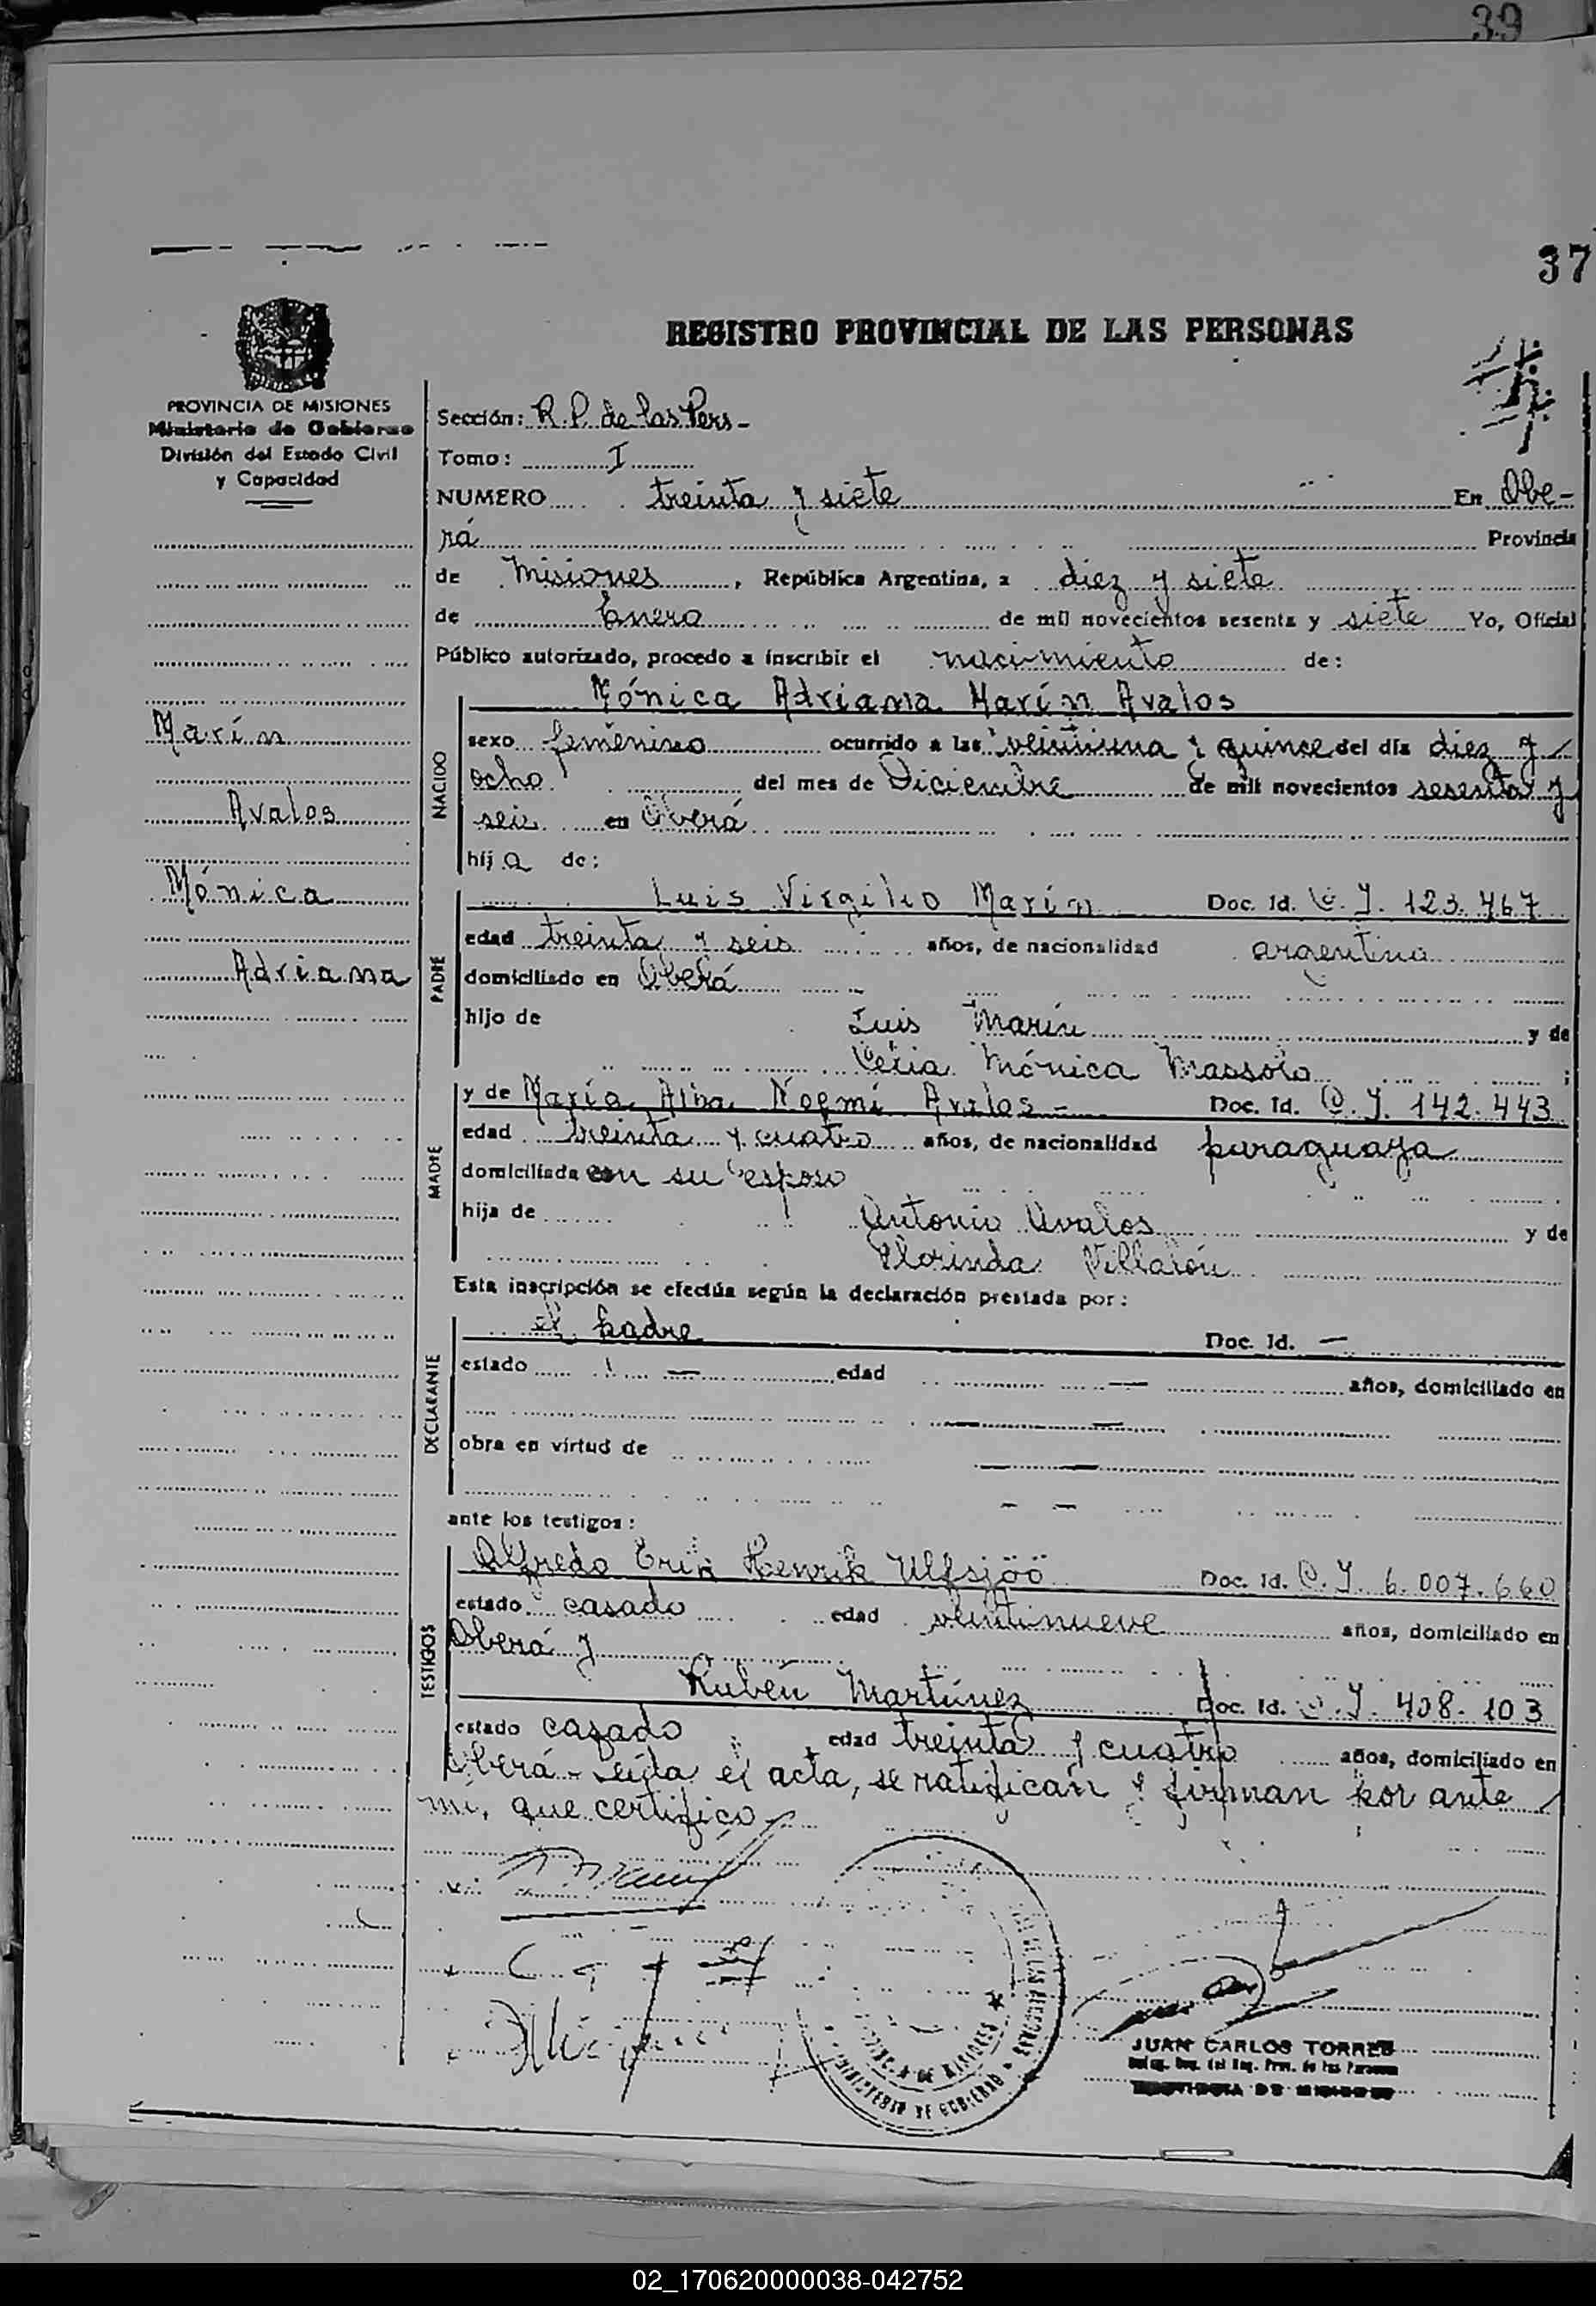 39
37
REGISTRO PROVINCIAL DE LAS PERSONAS
PROVINCIA DE MISIONES
Ministerio de Gobierno
División del Estado Civil
y Capacidad
Marín
Avalos
Mónica
Adriana
Sección: R.P. de las Pers-
Tomo: I
NUMERO treinta y siete En Obe-
rá Provincia
de Misiones, República Argentina, a diez y siete
de Enero de mil novecientos sesenta y siete Yo, Oficial
Público autorizado, procedo a inscribir el nacimiento de:
NACIDO
Mónica Adriana Marín Avalos
sexo femenino ocurrido a las veintiuna y quince del día diez y
ocho del mes de Diciembre de mil novecientos sesenta y
seis en Oberá
hija de:
PADRE
Luis Virgilio Marín Doc. Id. C.I. 123.467
edad treinta y seis años, de nacionalidad argentina
domiciliado en Oberá
hijo de Luis Marín y de
Mónica Massola
MADRE
y de María Alba Noemí Avalos- Doc. Id. C.I. 142.443
edad treinta y cuatro años, de nacionalidad paraguaya
domiciliada con su esposo
hija de Antonio Avalos y de
Florinda Villalón
Esta inscripción se efectúa según la declaración prestada por:
DECLARANTE
el padre Doc. Id. —
estado — edad — años, domiciliado en
obra en virtud de
ante los testigos:
TESTIGOS
Alfredo Erik Henrik Ulfsjöö Doc. Id. C.I. 6.007.660
estado casado edad veintinueve años, domiciliado en
Oberá y
Rubén Martínez Doc. Id. C.I. 408.103
estado casado edad treinta y cuatro años, domiciliado en
Oberá - Leída el acta, se ratifican y firman por ante
mí, que certifico
PROVINCIA DE MISIONES
MINISTERIO DE GOBIERNO
JUAN CARLOS TORRES
PROVINCIA DE MISIONES
02_170620000038-042752